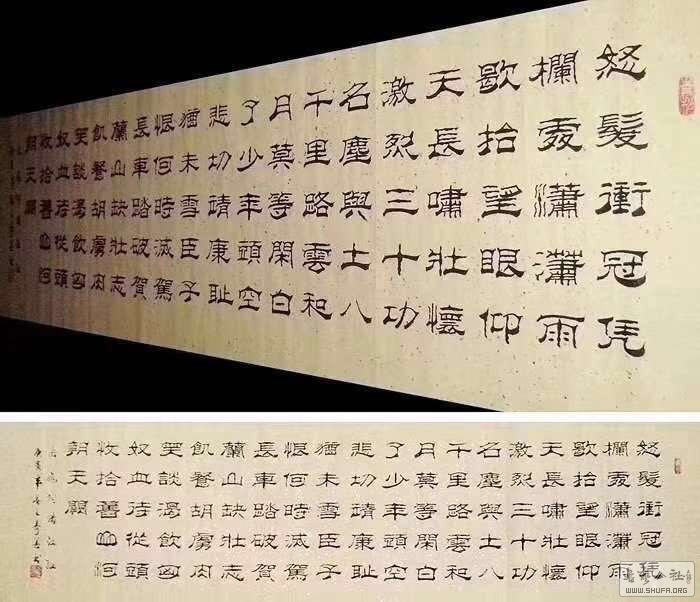 怒髮衝冠凭
欄處瀟瀟雨
歇抬望眼仰
天長嘯壯懷
激烈三十功
名塵與土八
千里路雲和
月莫等閑白
了少年頭空
悲切靖康恥
猶未雪臣子
恨何時滅駕
長車踏破賀
蘭山缺壯志
飢餐胡虜肉
笑談渴飲匈
奴血待從頭
收拾舊山河
朝天闕
怒髮衝冠凭
欄處瀟瀟雨
歇抬望眼仰
天長嘯壯懷
激烈三十功
名塵與土八
千里路雲和
月莫等閑白
了少年頭空
悲切靖康恥
猶未雪臣子
恨何時滅駕
長車踏破賀
蘭山缺壯志
飢餐胡虜肉
笑談渴飲匈
奴血待從頭
收拾舊山河
朝天闕
岳飛詞滿江紅
WWW.SHUFA.ORG